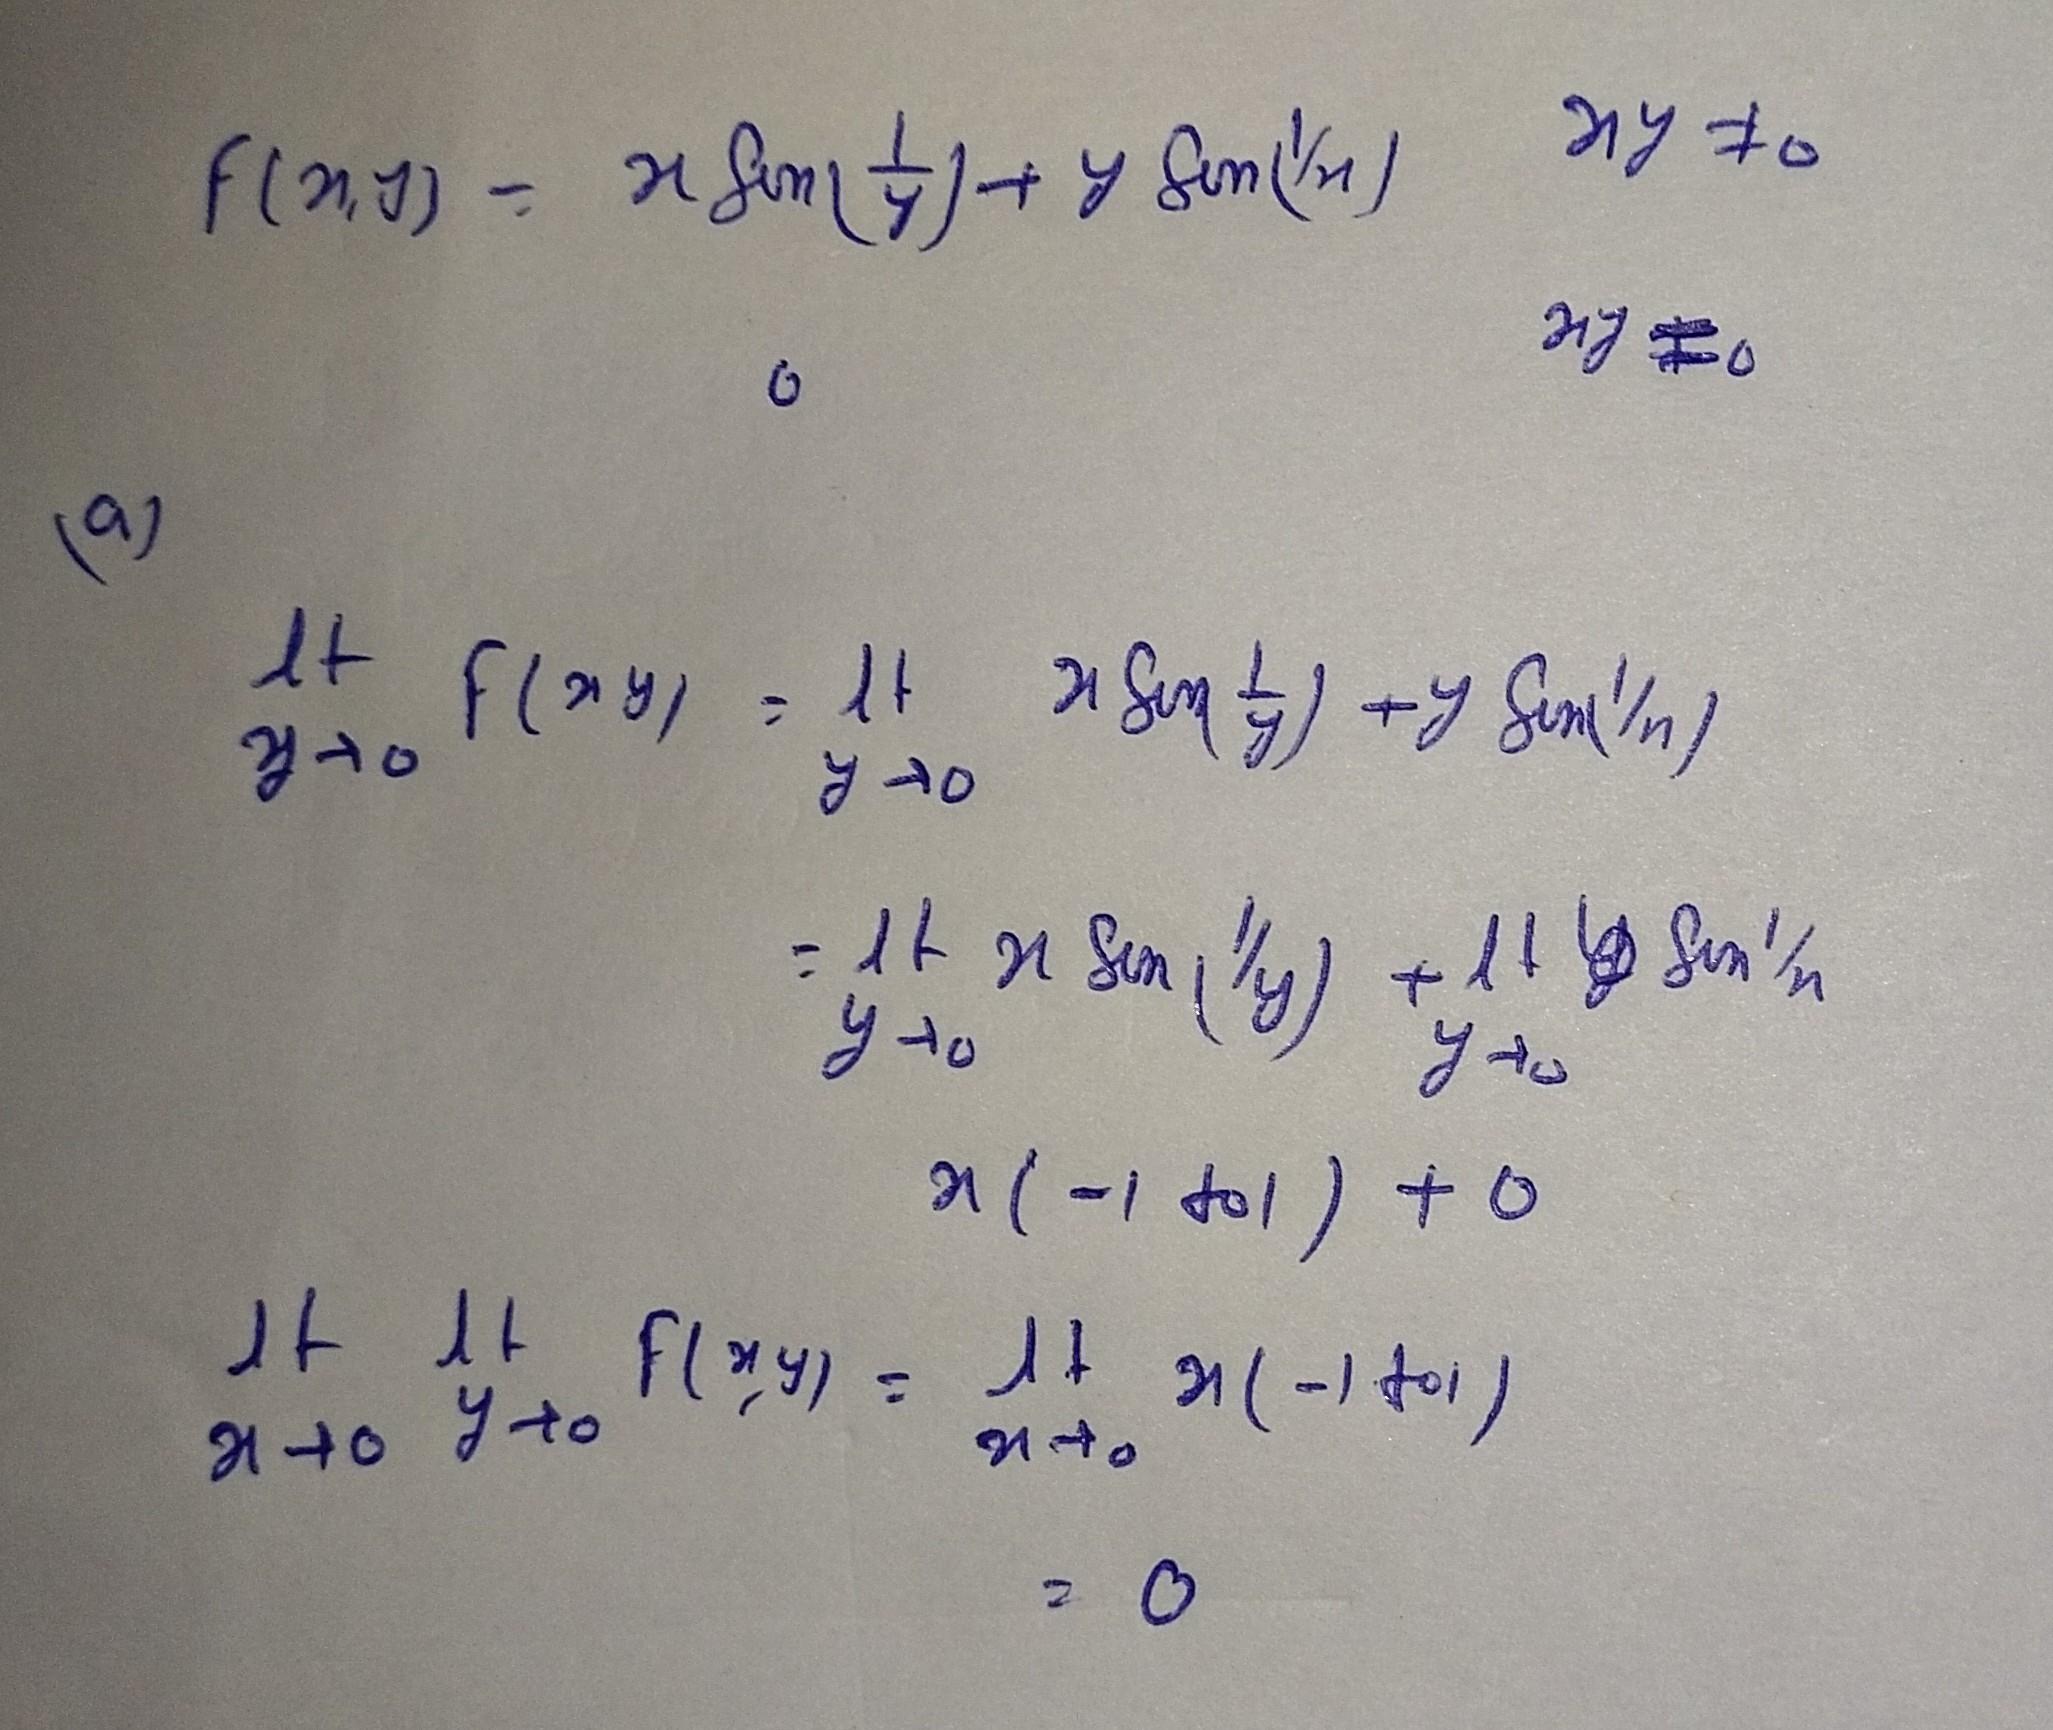 f(x,y) = x sin(1/y) + y sin(1/x) xy ≠ 0
0 xy = 0
(a)
lt y→0 f(x y) = lt y→0 x sin(1/y) + y sin(1/x)
= lt y→0 x sin(1/y) + lt y→0 y sin 1/x
x(-1 to 1) + 0
lt x→0 lt y→0 f(x,y) = lt x→0 x(-1 to 1)
= 0